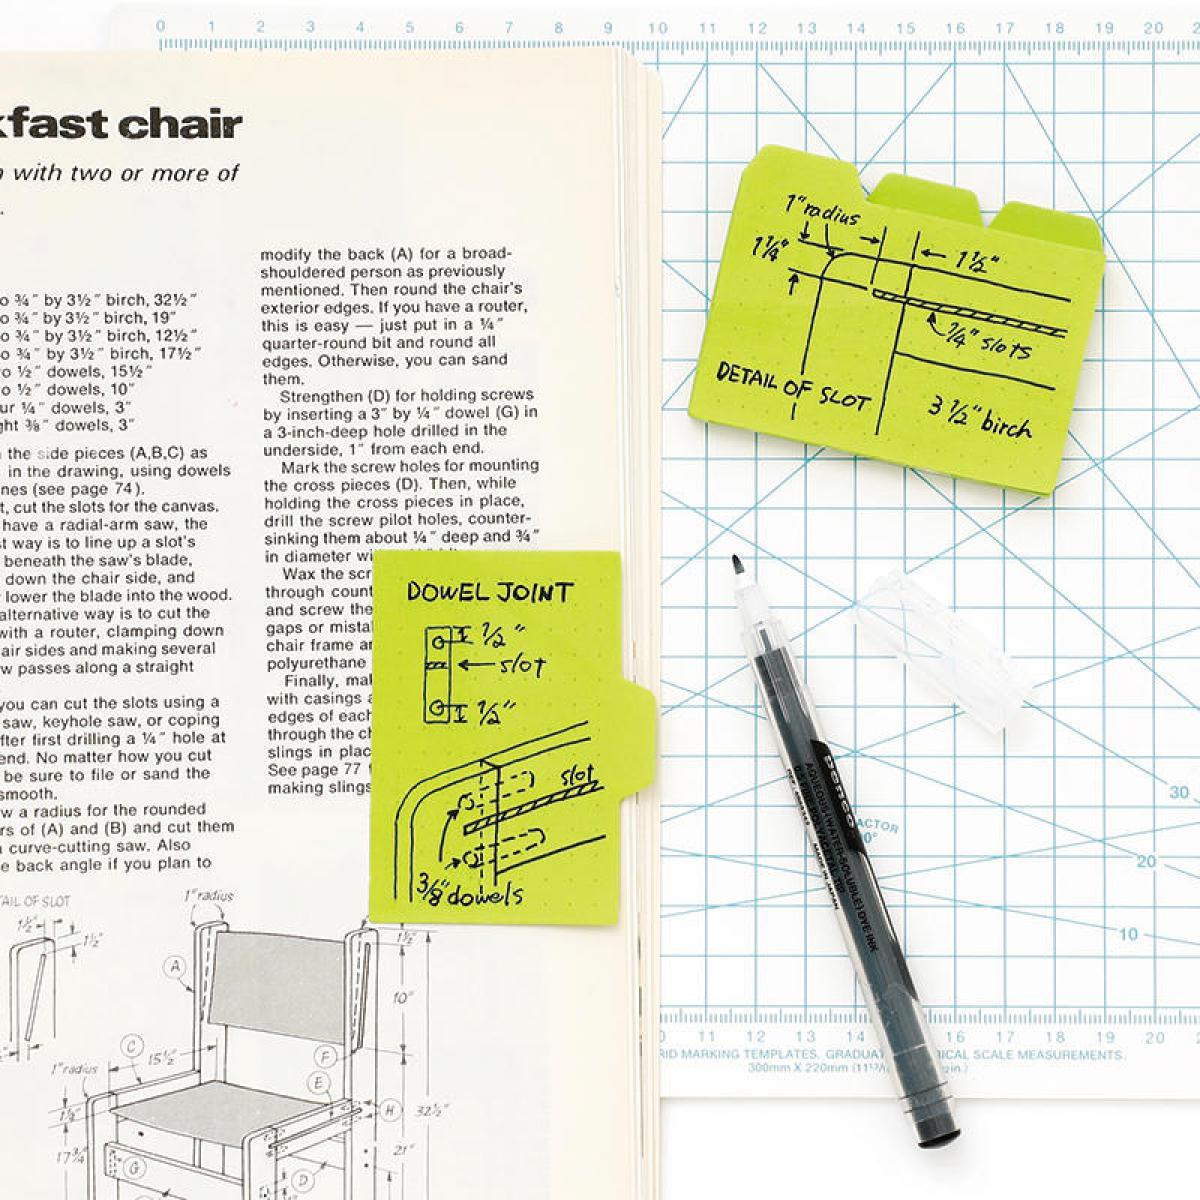 0 1 2 3 4 5 6 7 8 9 10 11 12 13 14 15 16 17 18 19 20
fast chair
with two or more of
o ¾" by 3½" birch, 32½"
o ¾" by 3½" birch, 19"
o ¾" by 3½" birch, 12½"
o ¾" by 3½" birch, 17½"
o ½" dowels, 15½"
o ½" dowels, 10"
ur ¼" dowels, 3"
ght ⅜" dowels, 3"
the side pieces (A,B,C) as
in the drawing, using dowels
nes (see page 74).
t, cut the slots for the canvas.
have a radial-arm saw, the
st way is to line up a slot's
beneath the saw's blade,
down the chair side, and
lower the blade into the wood.
alternative way is to cut the
with a router, clamping down
air sides and making several
w passes along a straight
you can cut the slots using a
saw, keyhole saw, or coping
fter first drilling a ¼" hole at
end. No matter how you cut
be sure to file or sand the
smooth.
w a radius for the rounded
rs of (A) and (B) and cut them
a curve-cutting saw. Also
e back angle if you plan to
modify the back (A) for a broad-
shouldered person as previously
mentioned. Then round the chair's
exterior edges. If you have a router,
this is easy — just put in a ¼"
quarter-round bit and round all
edges. Otherwise, you can sand
them.
Strengthen (D) for holding screws
by inserting a 3" by ¼" dowel (G) in
a 3-inch-deep hole drilled in the
underside, 1" from each end.
Mark the screw holes for mounting
the cross pieces (D). Then, while
holding the cross pieces in place,
drill the screw pilot holes, counter-
sinking them about ¼" deep and ¾"
in diameter wi
Wax the scr
through count
and screw the
gaps or mistal
chair frame ar
polyurethane
Finally, mal
with casings a
edges of each
through the ch
slings in plac
See page 77 f
making slings
AIL OF SLOT
1½"
1½"
1" radius
A
1½"
10"
C
15½"
F
1" radius
E
H
32½"
1¼"
17¾"
G
D
21"
DOWEL JOINT
1/2"
slot
1/2"
slot
3/8" dowels
1" radius
1¼"
1½"
¼" slots
DETAIL OF SLOT
3 ½" birch
penco
AQUEOUS (WATER-SOLUBLE) DYE INK
MADE IN JAPAN
ACTOR
30
20
10
11 12 13 14 15 16 17 18 19 20
RID MARKING TEMPLATES. GRADUAT ICAL SCALE MEASUREMENTS.
300mm X 220mm